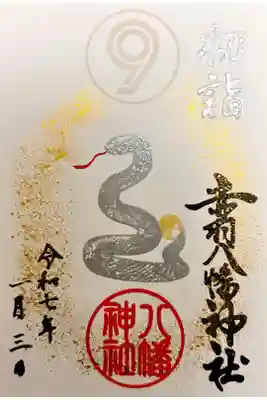 ⑨
初詣
赤羽八幡神社
八幡
神社
令和七年
一月三日